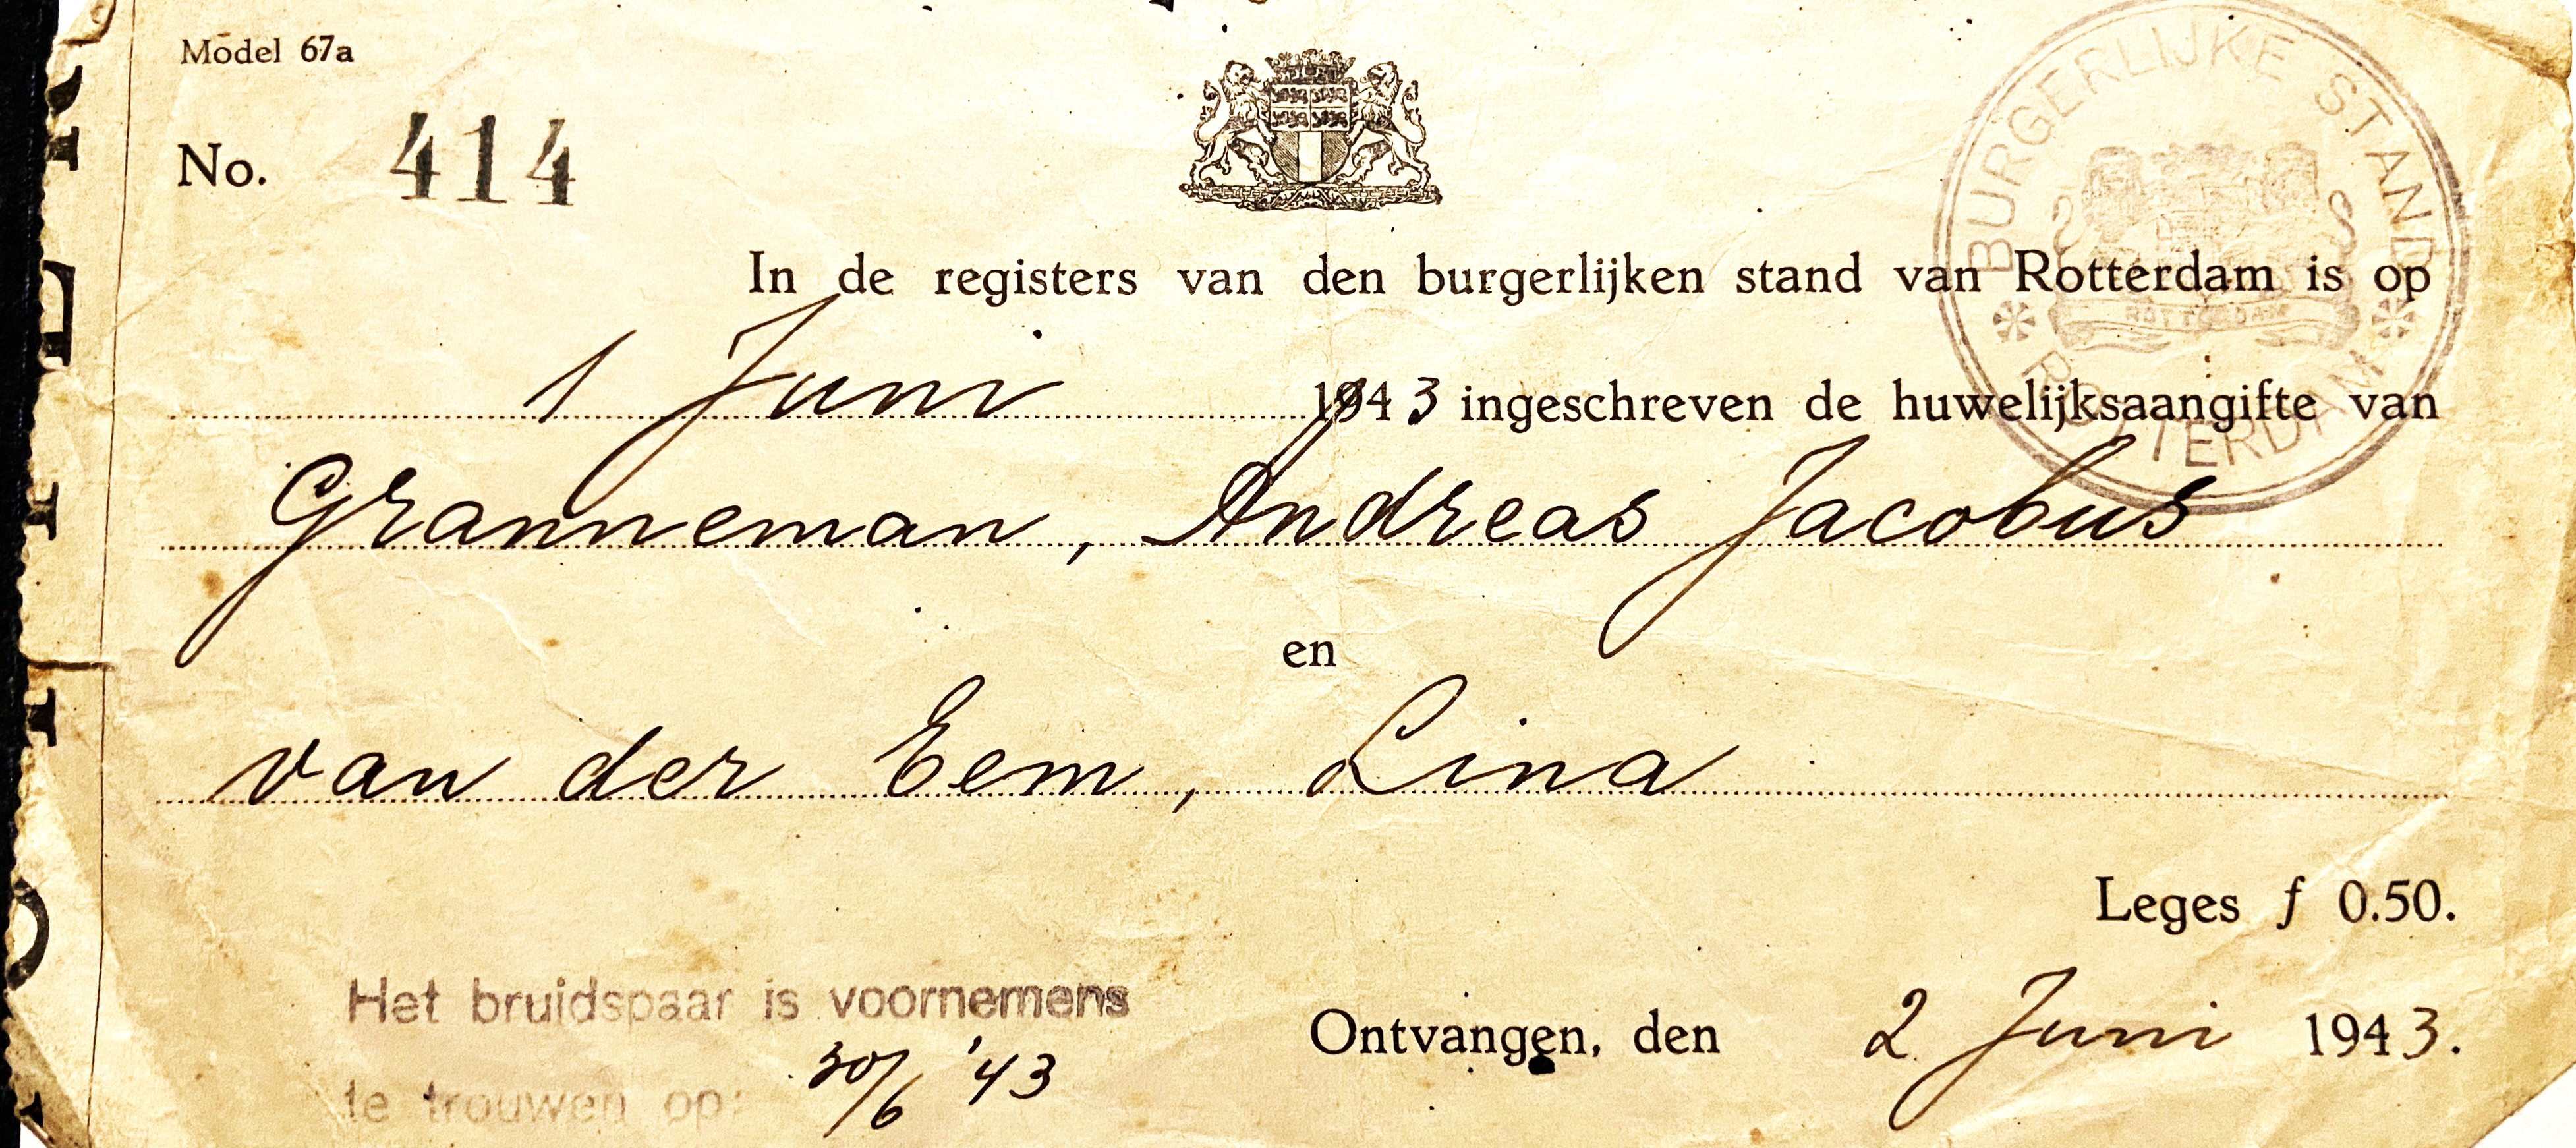 Model 67a
No. 414
BURGERLIJKE STAND
ROTTERDAM
ROTTERDAM
In de registers van den burgerlijken stand van Rotterdam is op
1 Juni 1943 ingeschreven de huwelijksaangifte van
Granneman, Andreas Jacobus
en
van der Eem, Lina
Leges ƒ 0.50.
Het bruidspaar is voornemens
te trouwen op: 30/6 '43
Ontvangen, den 2 Juni 1943.